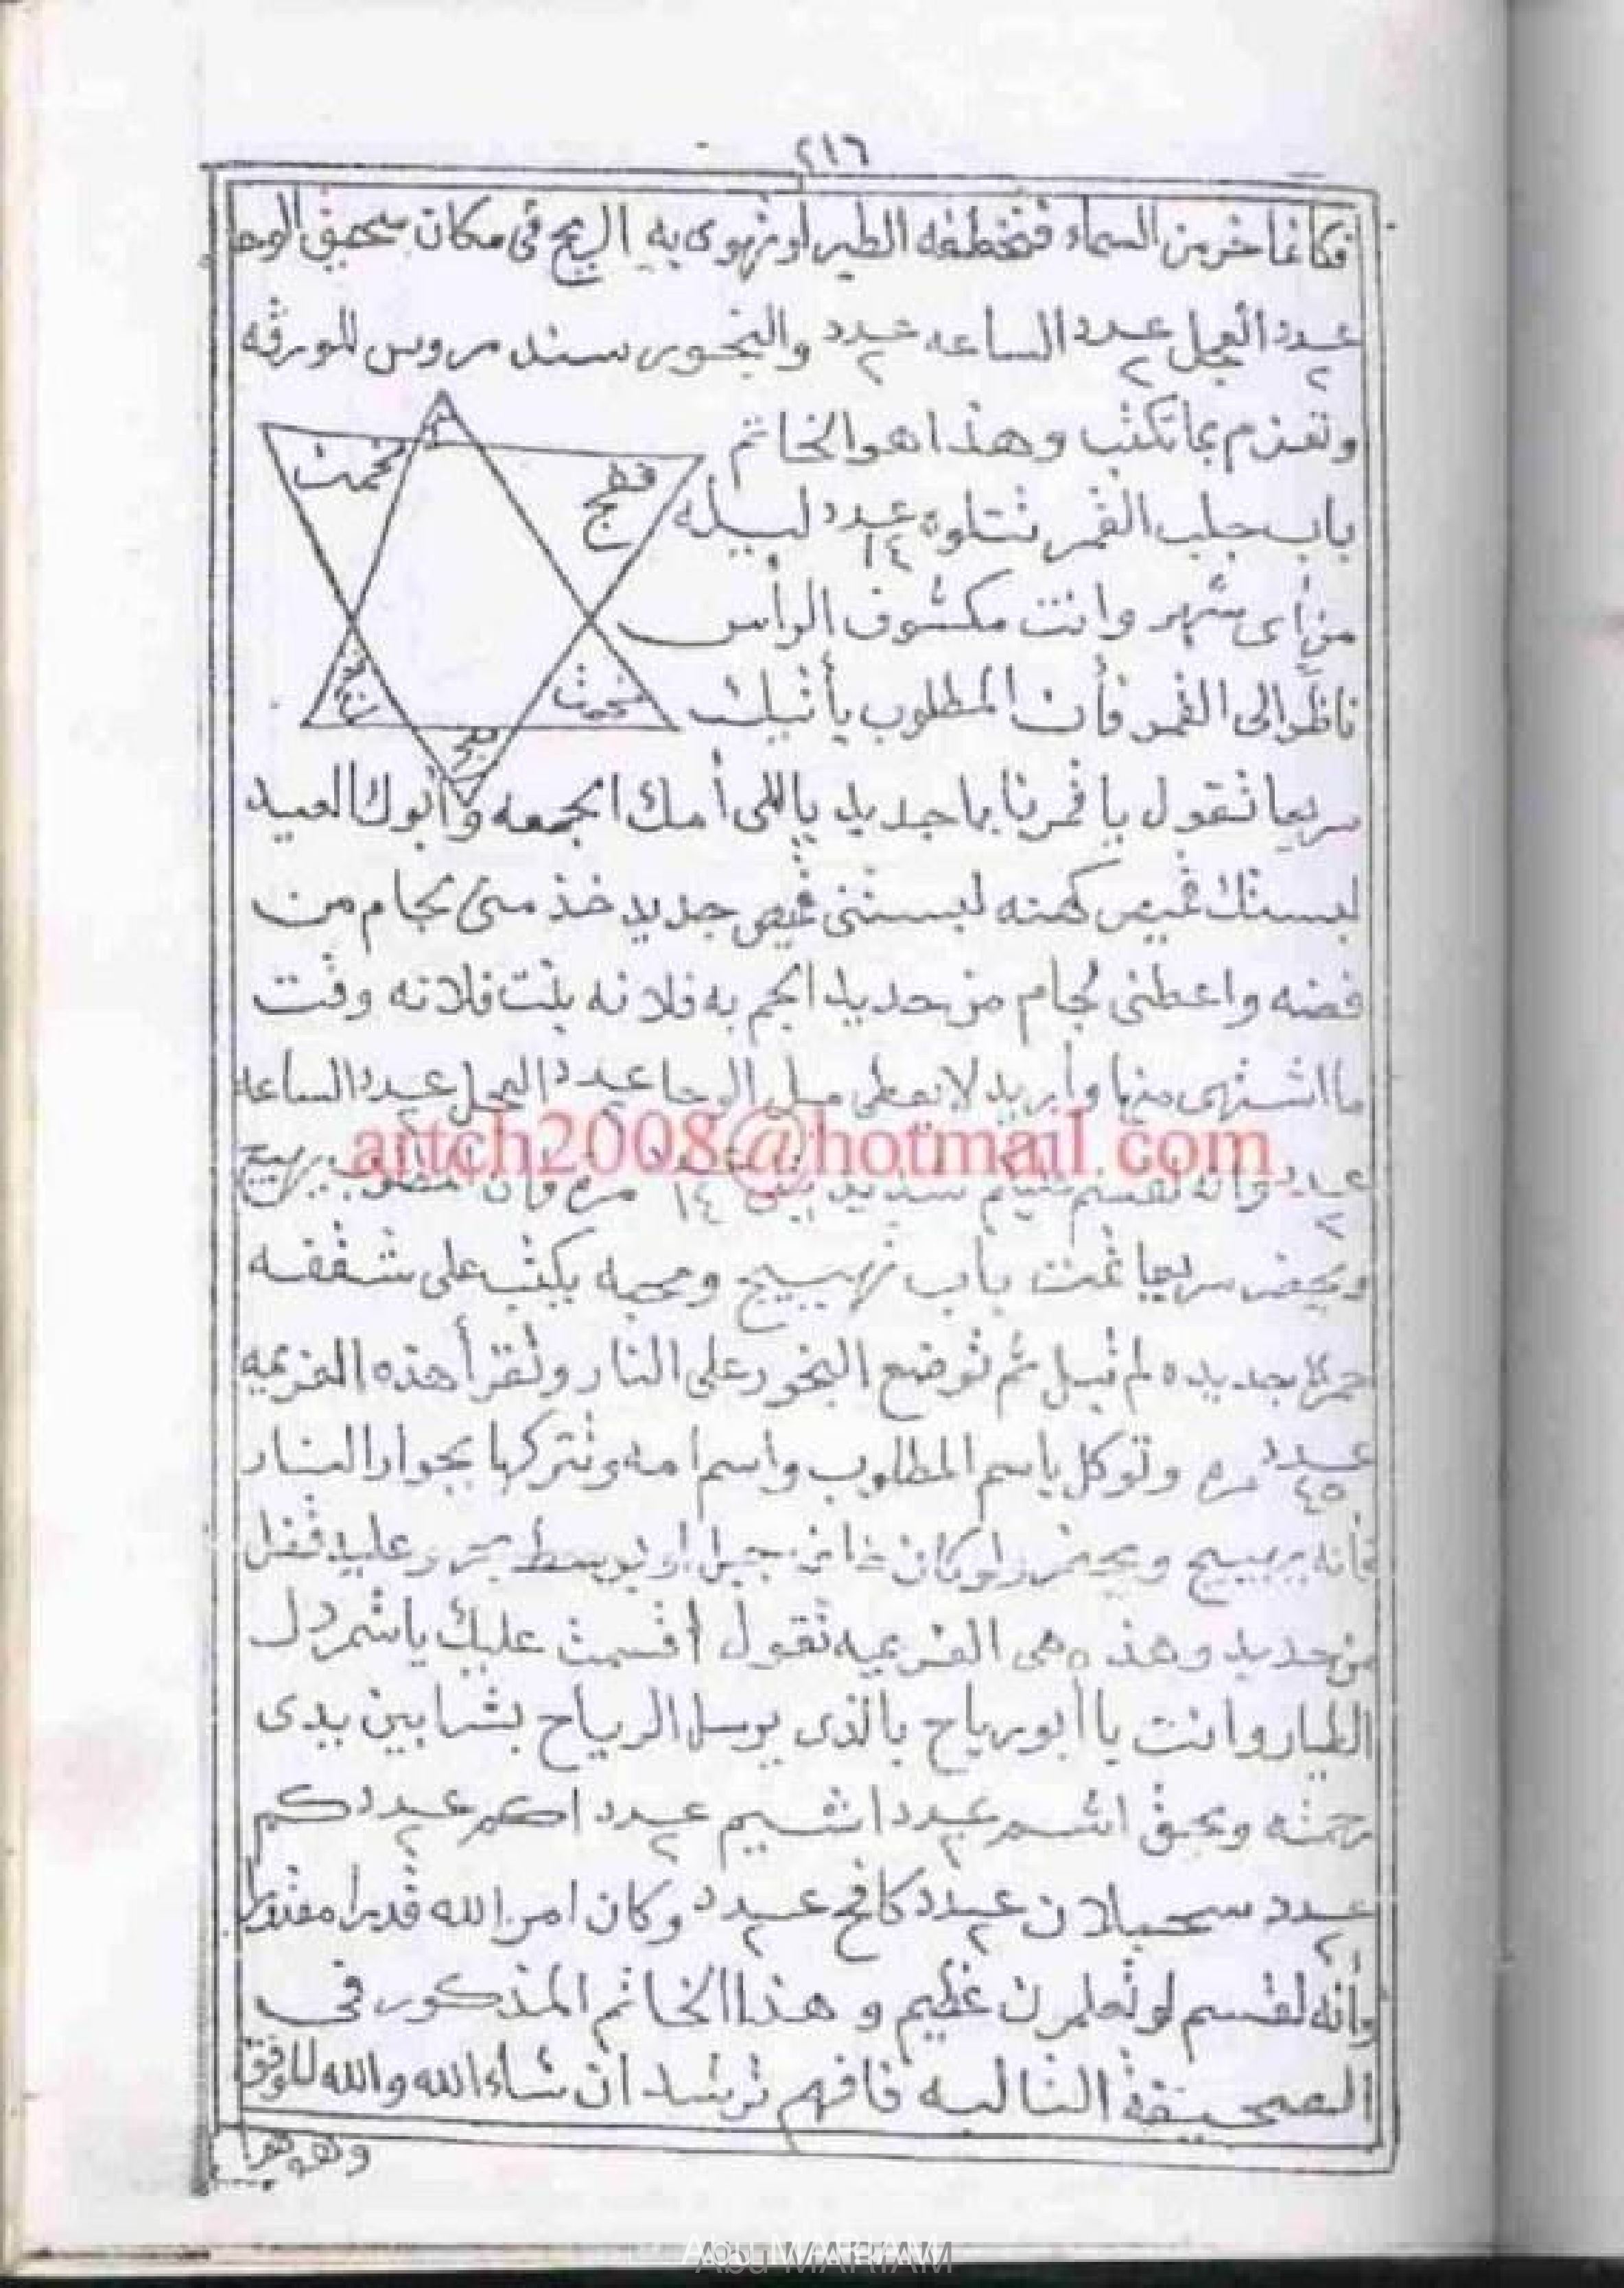 ٢١٦
فكأنما خر من السماء فتخطفه الطير او تهوى به الريح فى مكان سحيق الوحا
عدد ٢ العجل عدد ٢ الساعه عدد ٢ والبخور سندروس للورقه
وتعزم بما تكتب وهذا هو الخاتم
باب جلب القمر تتلوه عدد ١٤ ليله
من أى شهر وانت مكشوف الرأس
ناظر الى القمر فأن المطلوب يأتيك
سريعا تقول يا قمر يا جديد ياللى أمك الجمعه وأبوك العيد
لبستك قميص كهنه لبستنى قميص جديد خذ منى لجام من
فضه واعطنى لجام من حديد الجم به فلانه بنت فلانه وقت
ما اشتهى منها وأريد لا تعطى الوحا عدد ٢ العجل عدد ٢ الساعه
artch2008@hotmail.com
عدد ٢ وانه لقسم ١٤ مره فأن يهييج
ويحضر سريعا تمت باب تهييج ومحبه يكتب على شقفه
حمرا جديده لم تبل ثم توضع البخور على النار وتقرأ هذه العزيمه
عدد ٤٥ مره وتوكل باسم المطلوب واسم امه وتتركها بجوار النار
فأنه يهييج ويحضر ولو كان جبل او بوسط وعليه قفل
من حديد وهذه هى العزيمه تقول أقسمت عليك يا شمردل
الطيار وانت يا أبو رياح بالذى يرسل الرياح بشرا بين يدى
رحمته وبحق اشم عدد ٢ اشيم عدد ٢ اكم عدد ٢ كم
عدد ٢ سحيلان عدد ٢ كافح عدد ٢ وكان امر الله قدرا مقدورا
وأنه لقسم لو تعلمون عظيم وهذا الخاتم المذكور فى
الصحيفة التاليه فافهم ترشد ان شاء الله والله الموفق
Abu MARIAM